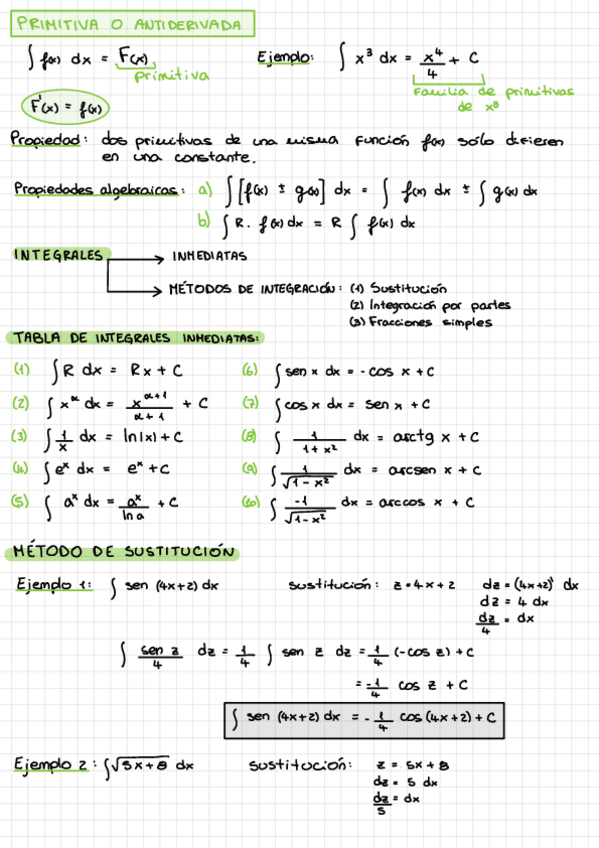 PRIMITIVA O ANTIDERIVADA
∫ f(x) dx = F(x)
primitiva
Ejemplo: ∫ x³ dx = x⁴/4 + C
Familia de primitivas
de x³
F'(x) = f(x)
Propiedad: dos primitivas de una misma función f(x) sólo difieren
en una constante.
Propiedades algebraicas: a) ∫ [f(x) ± g(x)] dx = ∫ f(x) dx ± ∫ g(x) dx
b) ∫ R. f(x) dx = R ∫ f(x) dx
INTEGRALES → INMEDIATAS
→ MÉTODOS DE INTEGRACIÓN: (1) Sustitución
(2) Integración por partes
(3) Fracciones simples
TABLA DE INTEGRALES INMEDIATAS:
(1) ∫ R dx = Rx + C
(2) ∫ x^α dx = x^(α+1)/(α+1) + C
(3) ∫ 1/x dx = ln|x| + C
(4) ∫ e^x dx = e^x + C
(5) ∫ a^x dx = a^x/ln a + C
(6) ∫ sen x dx = - cos x + C
(7) ∫ cos x dx = sen x + C
(8) ∫ 1/(1 + x²) dx = arctg x + C
(9) ∫ 1/√(1 - x²) dx = arcsen x + C
(10) ∫ -1/√(1 - x²) dx = arccos x + C
MÉTODO DE SUSTITUCIÓN
Ejemplo 1: ∫ sen (4x+2) dx sustitución: z = 4x + 2 dz = (4x+2)' dx
dz = 4 dx
dz/4 = dx
∫ sen z/4 dz = 1/4 ∫ sen z dz = 1/4 (-cos z) + C
= -1/4 cos z + C
∫ sen (4x+2) dx = - 1/4 cos (4x+2) + C
Ejemplo 2: ∫ √(5x + 8) dx sustitución: z = 5x + 8
dz = 5 dx
dz/5 = dx